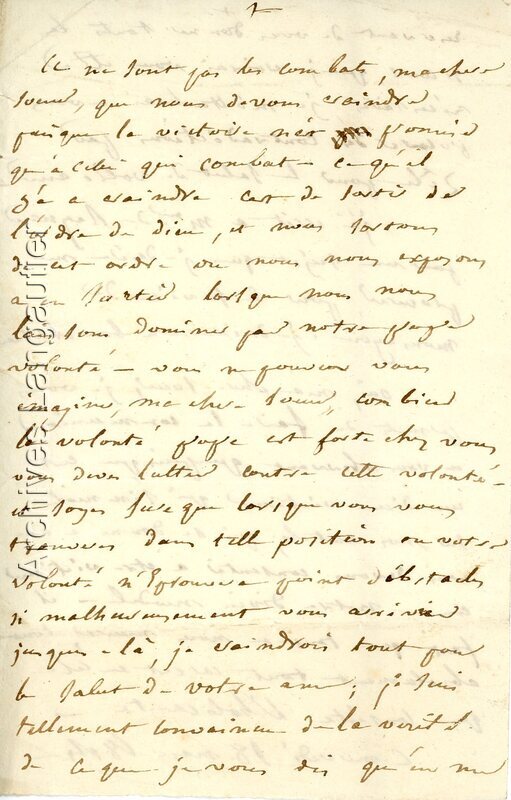 Ce ne sont pas les combats, ma chere
soeur, que nous devons craindre
puisque la victoire n'est promise
qu'à celui qui combat - ce qu'il
y a a craindre c'est de sortir de
l'ordre de dieu, et nous sortons
de cet ordre ou nous nous exposons
a en sortir lorsque nous nous
laissons dominer par notre propre
volonté - vous ne pouvez vous
imaginer, ma chere soeur, combien
la volonté propre est forte chez vous
vous devez lutter contre cette volonté -
et soyez sure que lorsque vous vous
trouverez dans telle position ou votre
volonté n'éprouvera point d'obstacles
si malheureusement vous arriviez
jusques-là, je craindrois tout pour
le salut de votre ame ; je suis
tellement convaincu de la verité
de ce que je vous dis qu'en me
Archives Langautier